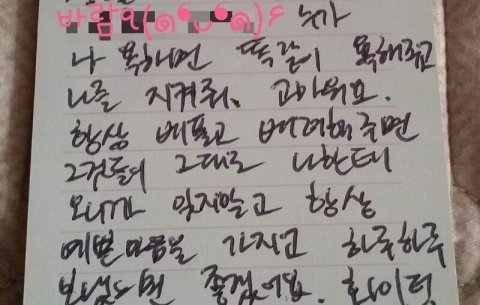 바람q(๑•᎑•๑)۶ 누가
나 욕하면 똑같이 욕해주고
나를 지켜줘. 고마워요.
항상 베풀고 배려해주면
그것들이 그대로 나한테
오니까 잊지말고 항상
예쁜마음을 가지고 하루하루
보냈으면 좋겠어요. 화이팅